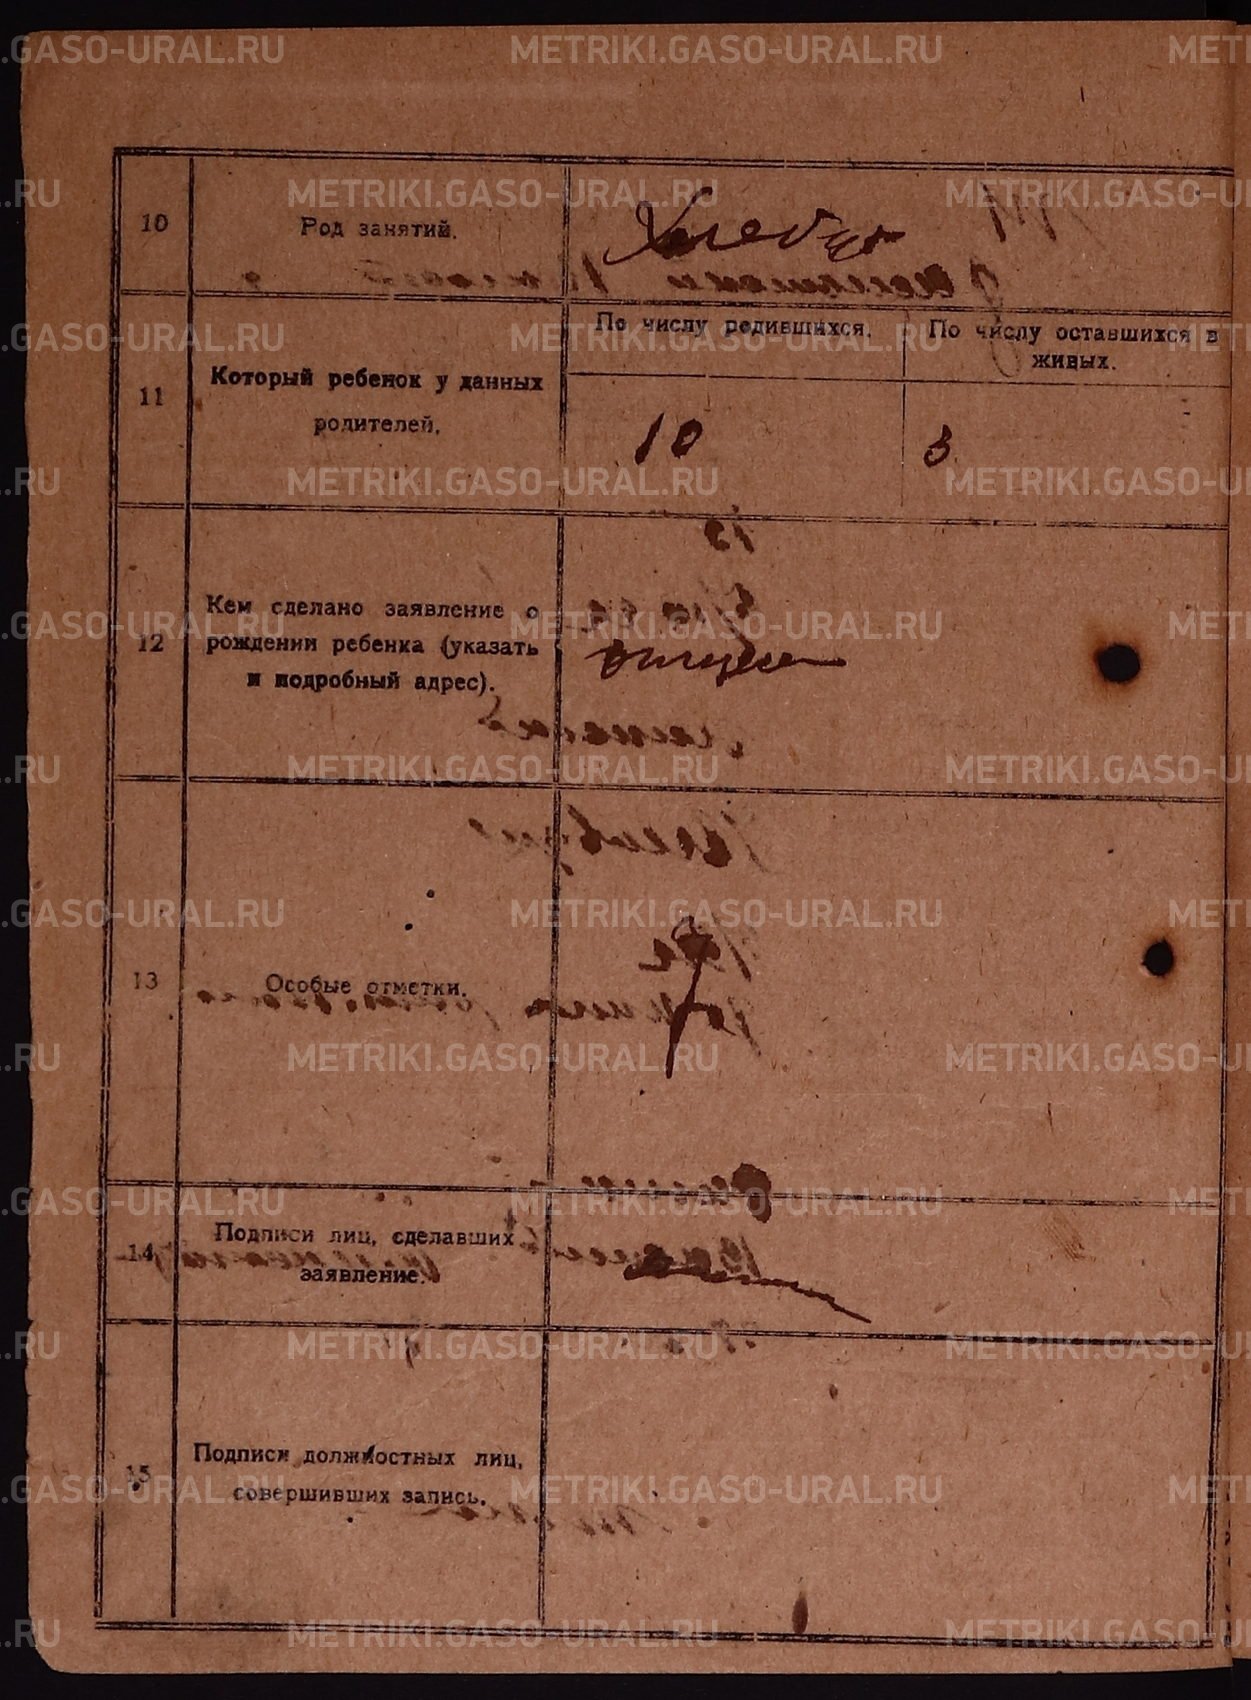 10
Род занятий.
11
Который ребенок у данных
родителей.
По числу родившихся.
По числу оставшихся в
живых.
10
3
12
Кем сделано заявление о
рождении ребенка (указать
и подробный адрес).
13
Особые отметки.
14
Подписи лиц, сделавших
заявление.
15
Подписи должностных лиц,
совершивших запись.
METRIKI.GASO-URAL.RU